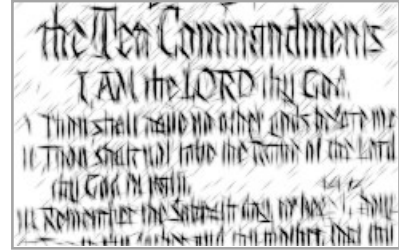 the Ten Commandments
I AM the LORD thy God.
I Thou shalt have no other gods before me
II Thou shalt not take the Name of the Lord
thy God in vain.
III Remember the Sabbath day, to holy